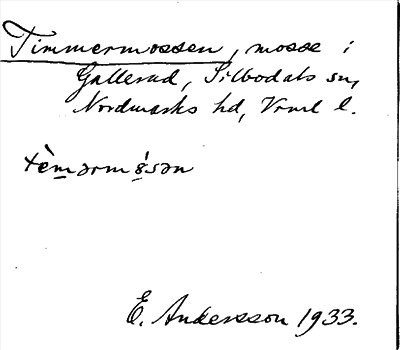 Timmermossen, mosse i
Gallerud, Silbodals sn,
Nordmarks hd, Vrml l.
tèmərmósən
E. Andersson 1933.